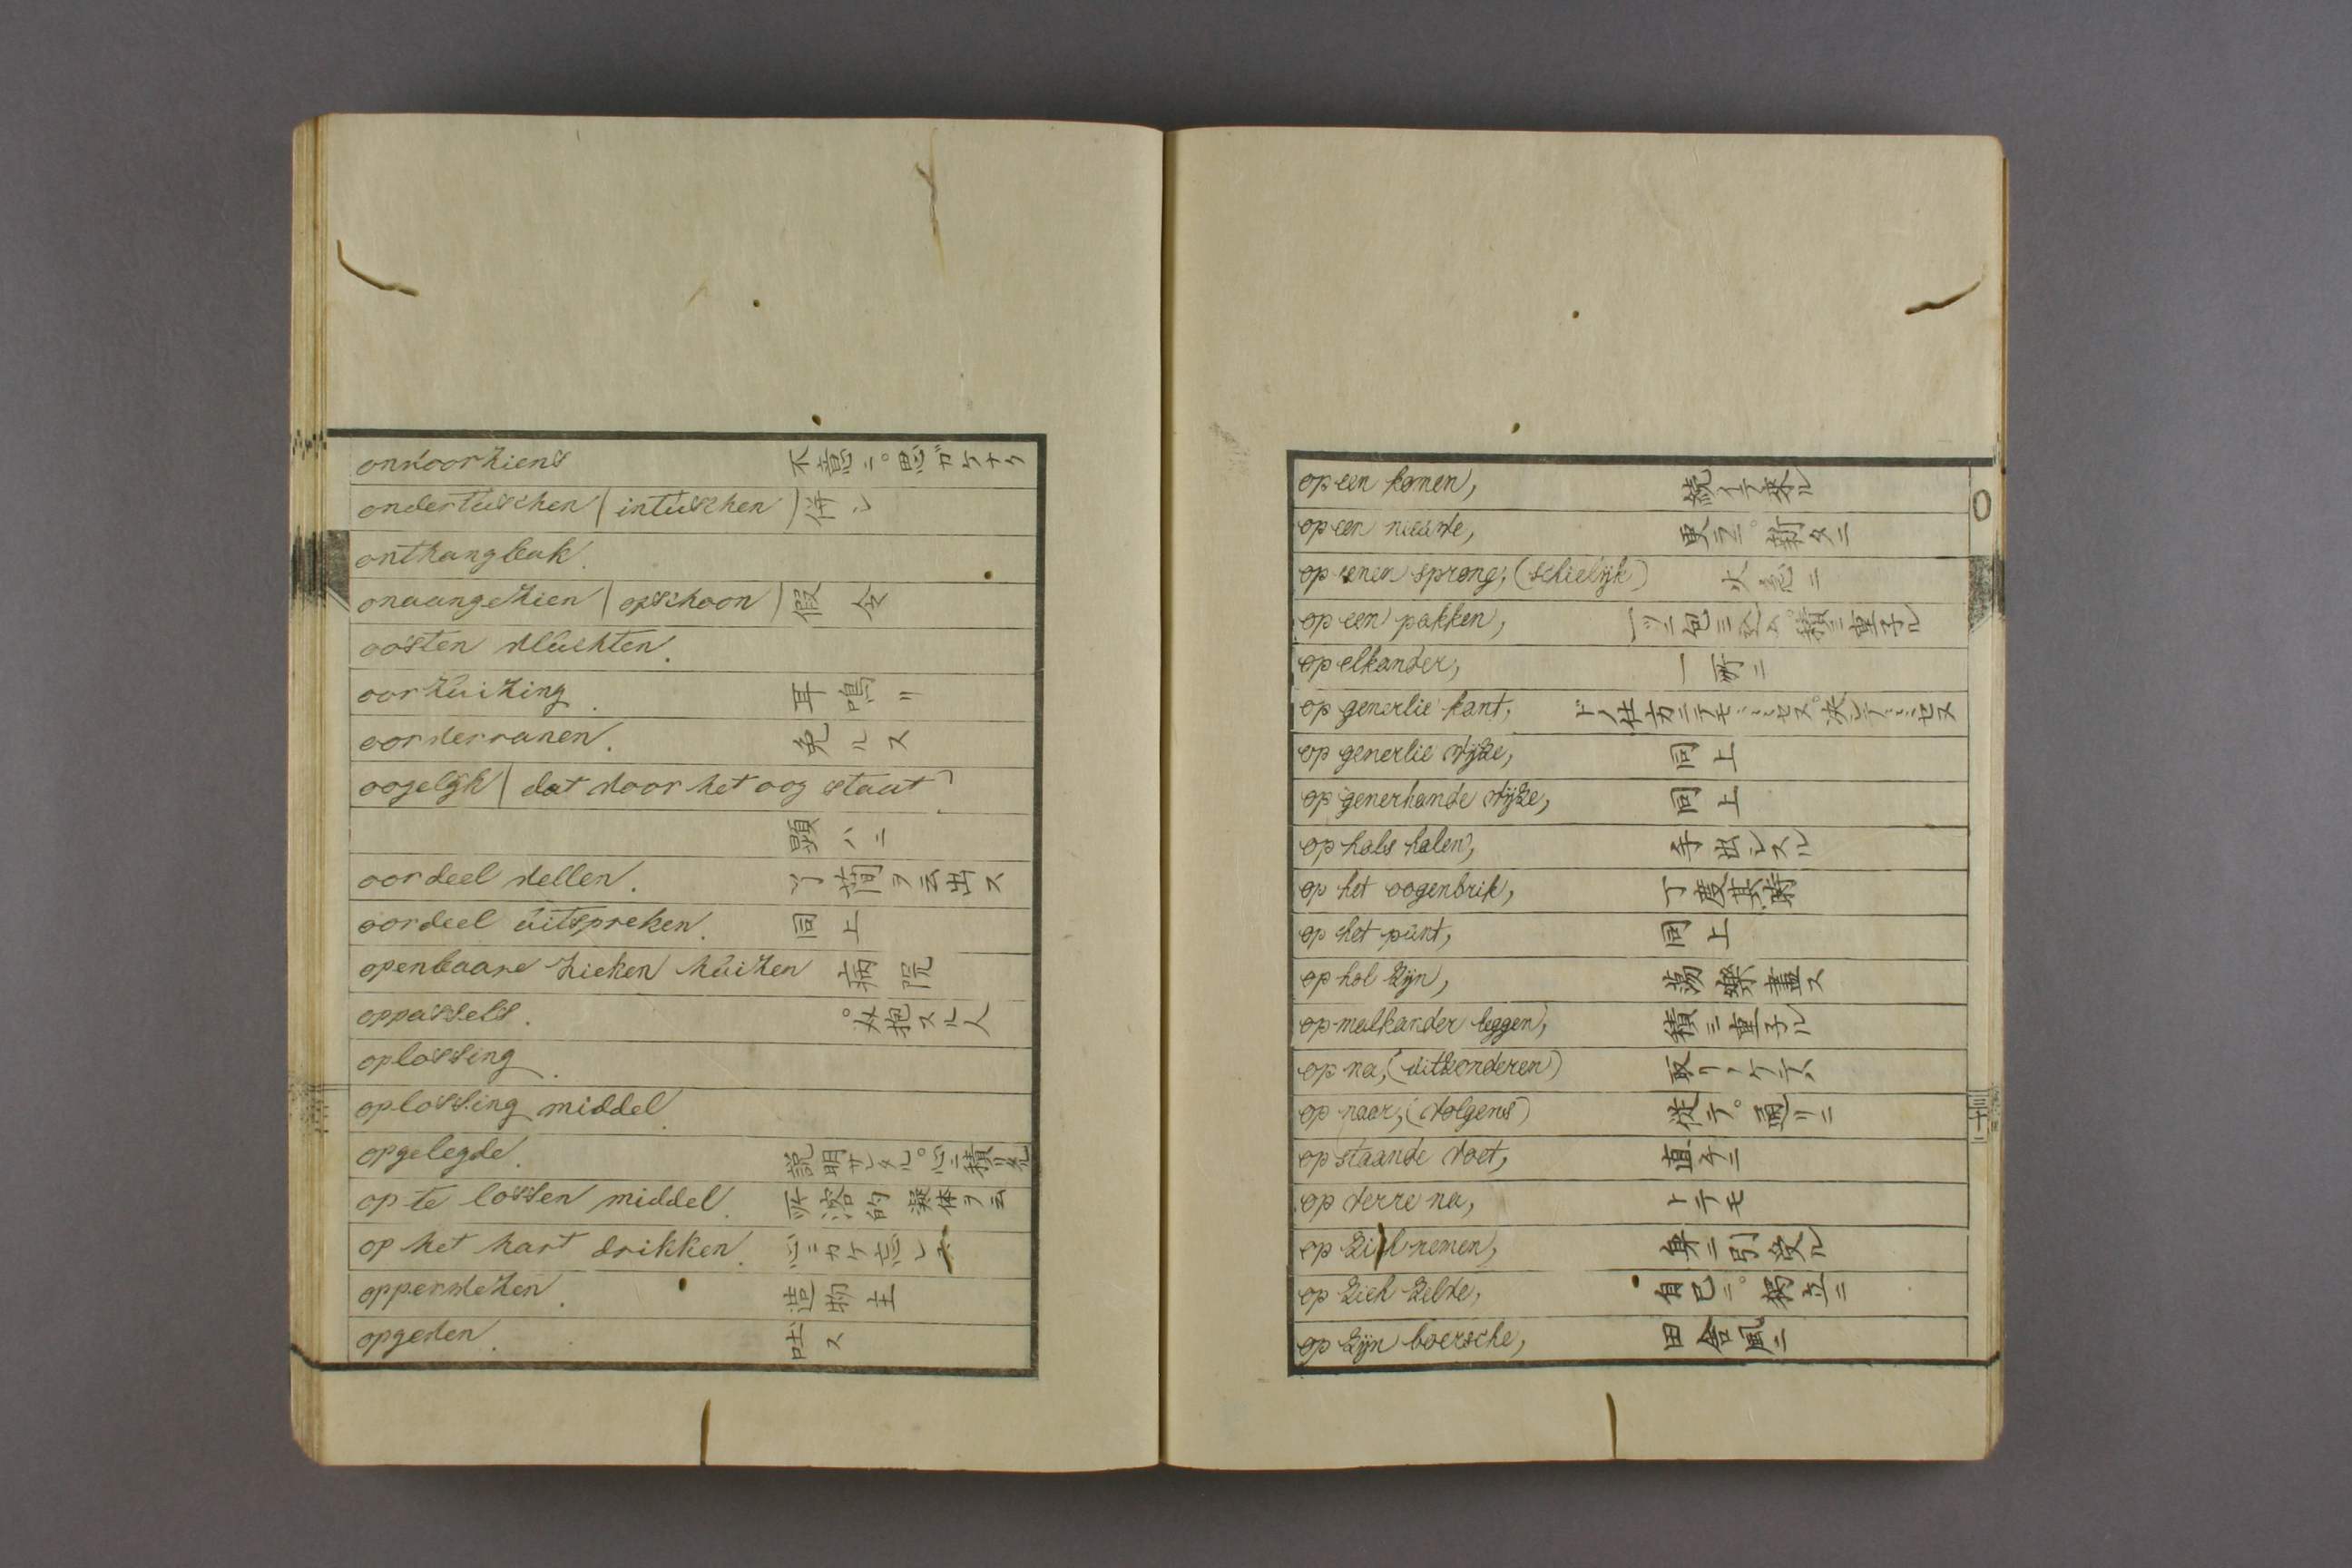 onvoorziens 不意ニ。思ガケナク
ondertusschen (intusschen) 併シ
onthangbak.
onaangezien (opschoon) 假令
oosten vluchten.
oorzuizing. 耳鳴リ
oorderranen. 免ルス
oogelijk (dat voor het oog staat)
顕ハニ
oordeel vellen. 了簡ヲ云出ス
oordeel uitspreken. 同上
openbaare zieken huizen 病院
oppassels. 介抱スル人
oplossing.
oplossing middel.
opgelegde. 説明サレタル。心ニ積リタル
op te lossen middel. 所溶的凝体ヲ云
op het hart drikken. 心ニカケ忘レ
opperwezen. 造物主
opgeven. 吐ス
O
op een komen, 続イテ来ル
op een nieuwe, 更ラニ。新タニ
op eenen sprong, (schielijk) 火急ニ
op een pakken, 一ツニ包ミ込ム。積ミ重子ル
op elkander, 一所ニ
op generlie kant, ドノ仕方ニテモ……セヌ。決シテ……セヌ
op generlie wijze, 同上
op generhande wijze, 同上
op hals halen, 手出シスル
op het oogenbrik, 丁度其時
op het punt, 同上
op hol zijn, 蕩楽盡ス
op malkander leggen, 積ミ重子ル
op na, (uitzonderen) 取リノケテ
op naar, (volgens) 従テ。通リニ
op staande voet, 直チニ
op verre na, トテモ
op zich nemen, 身ニ引受ル
op zich zelve, 自己ニ。獨立ニ
op zijn boersche, 田舎風ニ
三十二